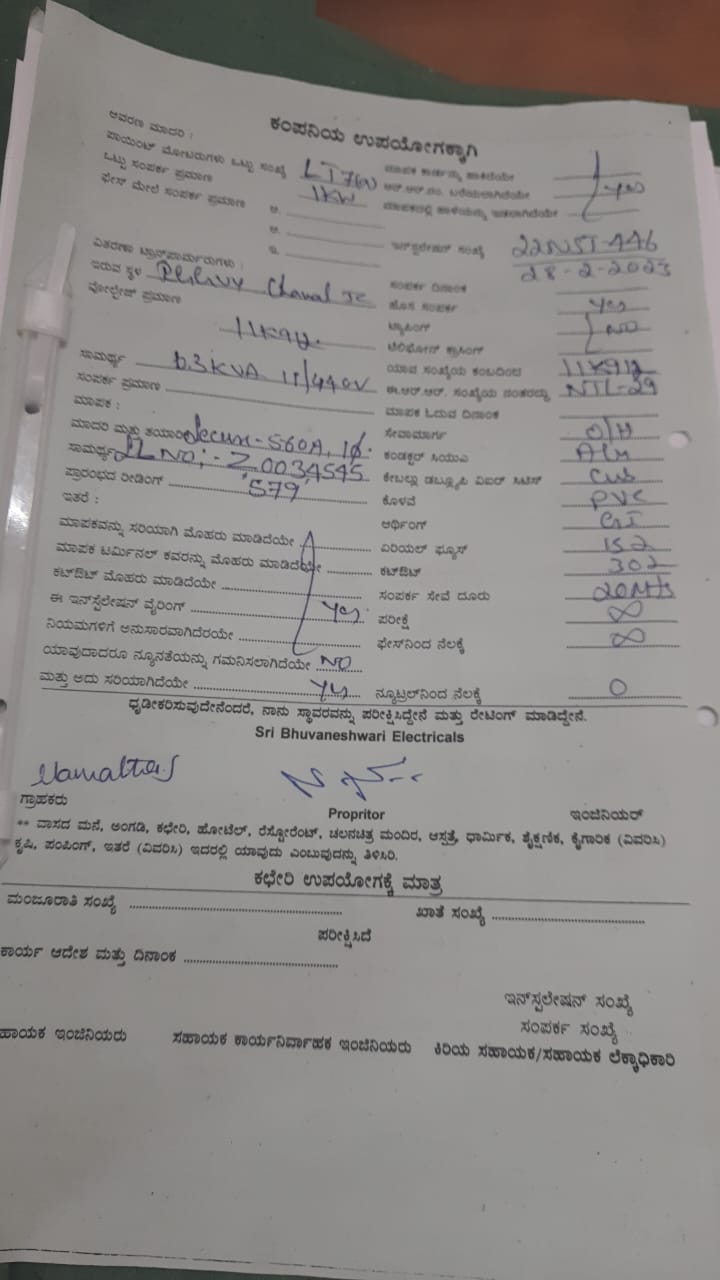 ಕಂಪನಿಯ ಉಪಯೋಗಕ್ಕಾಗಿ
ಆವರಣ ಮಾದರಿ :
ಪಾಯಿಂಟ್ ಮೋಟರುಗಳು ಒಟ್ಟು ಸಂಖ್ಯೆ LT7(a)
ಒಟ್ಟು ಸಂಪರ್ಕ ಪ್ರಮಾಣ 1KW
ಫೇಸ್ ಮೇಲೆ ಸಂಪರ್ಕ ಪ್ರಮಾಣ ಅ.
ಆ.
ಇ.
ವಿತರಣಾ ಟ್ರಾನ್ಸ್‌ಫಾರ್ಮರುಗಳು :
ಇರುವ ಸ್ಥಳ
ವೋಲ್ಟೇಜ್ ಪ್ರಮಾಣ
ಸಾಮರ್ಥ್ಯ 63KVA 11/440V
ಸಂಪರ್ಕ ಪ್ರಮಾಣ
ಮಾಪಕ :
ಮಾದರಿ ಮತ್ತು ತಯಾರಿ Secure-S60A, 1ɸ.
ಸಾಮರ್ಥ್ಯ SL NO:- Z0034545
ಪ್ರಾರಂಭದ ರೀಡಿಂಗ್ 579
ಇತರೆ :
ಮಾಪಕವನ್ನು ಸರಿಯಾಗಿ ಮೊಹರು ಮಾಡಿದೆಯೇ
ಮಾಪಕ ಟರ್ಮಿನಲ್ ಕವರನ್ನು ಮೊಹರು ಮಾಡಿದೆಯೇ
ಕಟ್‌ಔಟ್ ಮೊಹರು ಮಾಡಿದೆಯೇ
ಈ ಇನ್‌ಸ್ಟಲೇಷನ್ ವೈರಿಂಗ್ Yes
ನಿಯಮಗಳಿಗೆ ಅನುಸಾರವಾಗಿದೆರಯೇ
ಯಾವುದಾದರೂ ನ್ಯೂನತೆಯನ್ನು ಗಮನಿಸಲಾಗಿದೆಯೇ NO
ಮತ್ತು ಅದು ಸರಿಯಾಗಿದೆಯೇ Yes
Yes
ಇನ್‌ಸ್ಟಲೇಷನ್ ಸಂಖ್ಯೆ 22NST-446
ಸಂಪರ್ಕ ದಿನಾಂಕ 28-2-2023
ಹೊಸ ಸಂಪರ್ಕ Yes
ಟ್ಯಾಪಿಂಗ್
ಟೆಲಿಫೋನ್ ಕ್ರಾಸಿಂಗ್ NO
ಯಾವ ಸಂಖ್ಯೆಯ ಕಂಬದಿಂದ
ಈ.ಆರ್.ಆರ್. ಸಂಖ್ಯೆಯ ನಂತರದ್ದು NTL-29
ಮಾಪಕ ಓದುವ ದಿನಾಂಕ
ಸೇವಾಮಾರ್ಗ O/H
ಕಂಡಕ್ಟರ್ ಸಿಯುಎ Alu
ಕೇಬಲ್ಲು ಡಬ್ಲ್ಯೂಪಿ ವಿಐರ್ ಸಿಟಿಸ್
ಕೊಳವೆ PVC
ಆರ್ಥಿಂಗ್ GI
ಏರಿಯಲ್ ಫ್ಯೂಸ್ 152
ಕಟ್‌ಔಟ್ 302
ಸಂಪರ್ಕ ಸೇವೆ ದೂರು 20Mts
ಪರೀಕ್ಷೆ ∞
ಫೇಸ್‌ನಿಂದ ನೆಲಕ್ಕೆ ∞
ನ್ಯೂಟ್ರಲ್‌ನಿಂದ ನೆಲಕ್ಕೆ 0
ಧೃಡೀಕರಿಸುವುದೇನೆಂದರೆ, ನಾನು ಸ್ಥಾವರವನ್ನು ಪರೀಕ್ಷಿಸಿದ್ದೇನೆ ಮತ್ತು ರೇಟಿಂಗ್ ಮಾಡಿದ್ದೇನೆ.
Sri Bhuvaneshwari Electricals
ಗ್ರಾಹಕರು Propritor ಇಂಜಿನಿಯರ್
** ವಾಸದ ಮನೆ, ಅಂಗಡಿ, ಕಛೇರಿ, ಹೋಟೆಲ್, ರೆಸ್ಟೋರೆಂಟ್, ಚಲನಚಿತ್ರ ಮಂದಿರ, ಆಸ್ಪತ್ರೆ, ಧಾರ್ಮಿಕ, ಶೈಕ್ಷಣಿಕ, ಕೈಗಾರಿಕ (ವಿವರಿಸಿ)
ಕೃಷಿ, ಪಂಪಿಂಗ್, ಇತರೆ (ವಿವರಿಸಿ) ಇದರಲ್ಲಿ ಯಾವುದು ಎಂಬುವುದನ್ನು ತಿಳಿಸಿರಿ.
ಕಛೇರಿ ಉಪಯೋಗಕ್ಕೆ ಮಾತ್ರ
ಮಂಜೂರಾತಿ ಸಂಖ್ಯೆ ಖಾತೆ ಸಂಖ್ಯೆ
ಪರೀಕ್ಷಿಸಿದೆ
ಕಾರ್ಯ ಆದೇಶ ಮತ್ತು ದಿನಾಂಕ
ಇನ್‌ಸ್ಟಲೇಷನ್ ಸಂಖ್ಯೆ
ಸಂಪರ್ಕ ಸಂಖ್ಯೆ
ಹಾಯಕ ಇಂಜಿನಿಯರು ಸಹಾಯಕ ಕಾರ್ಯನಿರ್ವಾಹಕ ಇಂಜಿನಿಯರು ಕಿರಿಯ ಸಹಾಯಕ/ಸಹಾಯಕ ಲೆಕ್ಕಾಧಿಕಾರಿ